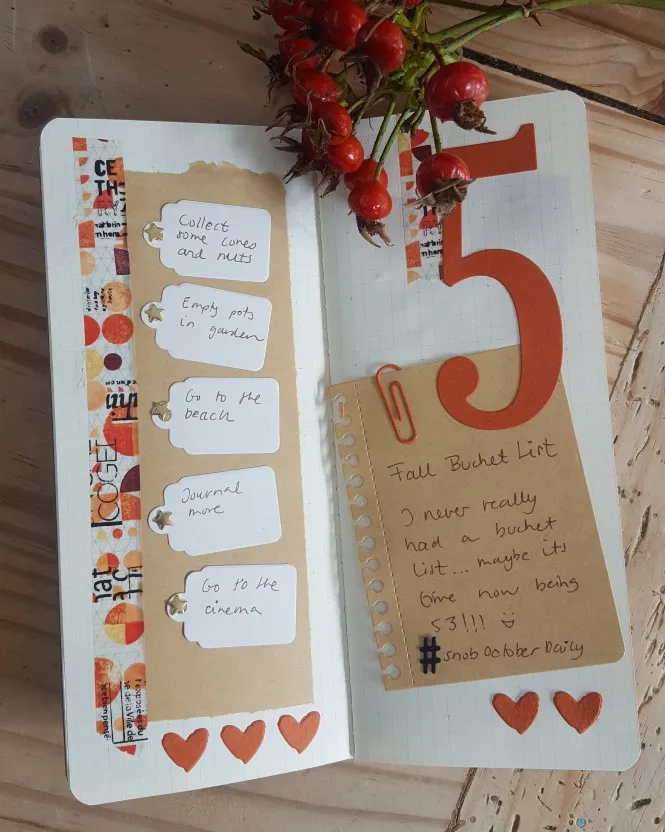 CE
TH
Collect
some cones
and nuts
Empty pots
in garden
Go to the
beach
Journal
more
Go to the
cinema
COGEL
5
Fall Bucket List
I never really
had a bucket
list... maybe its
time now being
53!!! ü
#snobOctoberDaily